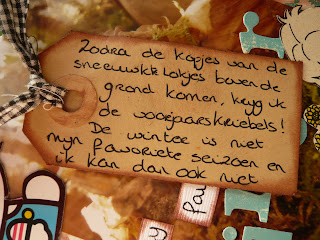 Zodra de kopjes van de
sneeuwklokjes boven de
grond komen, krijg ik
de voorjaarskriebels!
De winter is niet
mijn favoriete seizoen en
ik kan dan ook niet